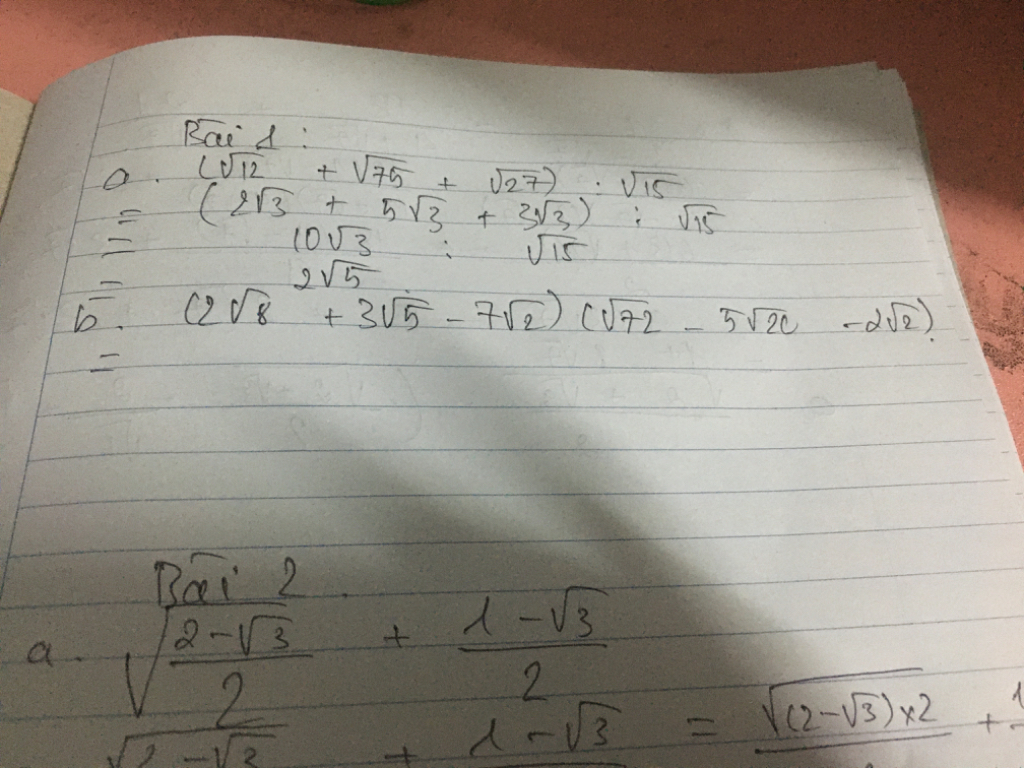 Bài 1 :
a. (√12 + √75 + √27) : √15
= (2√3 + 5√3 + 3√3) : √15
= 10√3 : √15
= 2√5
b. (2√8 + 3√5 - 7√2) (√72 - 5√20 - 2√2)
=
Bài 2.
a. √((2-√3)/2) + (1-√3)/2
√(2-√3) + 1-√3 = √((2-√3)×2) +